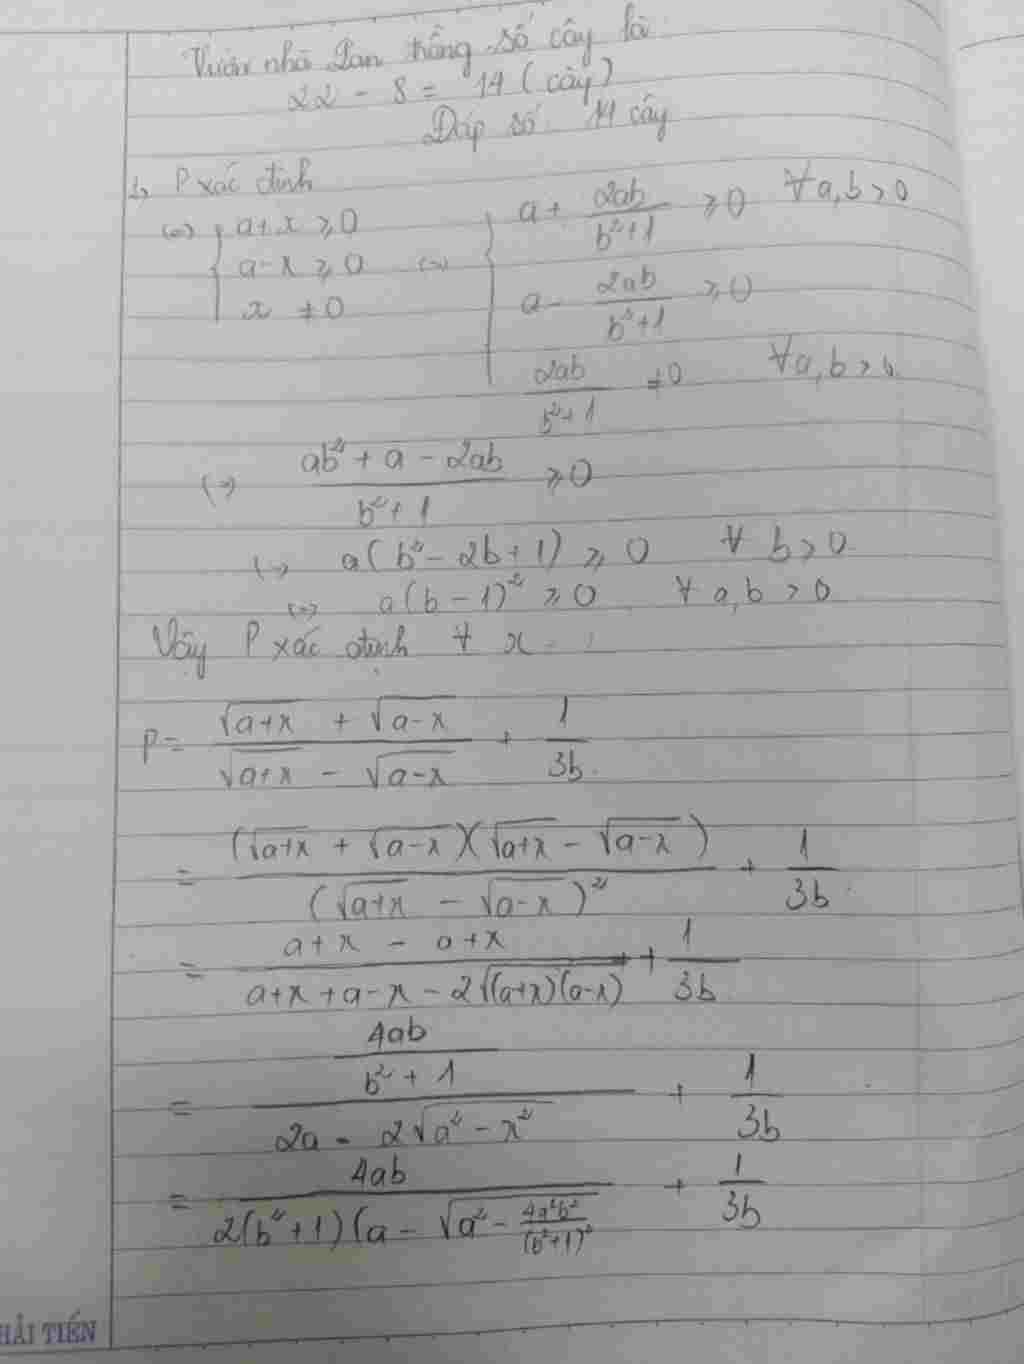 Vườn nhà Lan trồng số cây là
22 - 8 = 14 (cây)
Đáp số 14 cây
b, P xác định
(=) { a+x ≥ 0
a-x ≥ 0
x ≠ 0
(=) { a + 2ab/(b²+1) ≥ 0 ∀ a,b > 0
a - 2ab/(b²+1) ≥ 0
2ab/(b²+1) ≠ 0 ∀ a,b >
(=) (ab² + a - 2ab)/(b²+1) ≥ 0
(=) a(b² - 2b + 1) ≥ 0 ∀ b > 0
(=) a(b - 1)² ≥ 0 ∀ a,b > 0
Vậy P xác định ∀ x
P = (√(a+x) + √(a-x))/(√(a+x) - √(a-x)) + 1/(3b)
= ((√(a+x) + √(a-x))(√(a+x) - √(a-x)))/(√(a+x) - √(a-x))² + 1/(3b)
= (a+x - a+x)/(a+x+a-x - 2√((a+x)(a-x))) + 1/(3b)
= (4ab/(b²+1))/(2a - 2√(a² - x²)) + 1/(3b)
= 4ab/(2(b²+1)(a - √(a² - 4a²b²/(b²+1)²) + 1/(3b)
HẢI TIẾN